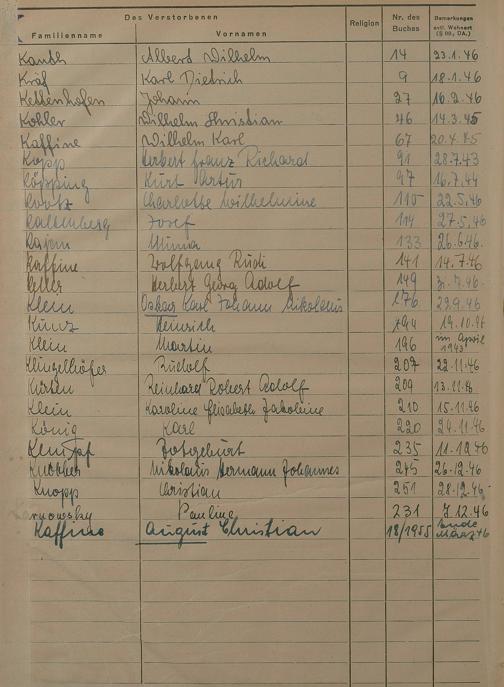 Des Verstorbenen
Familienname Vornamen Religion Nr. des Buches Bemerkungen evtl. Wohnort (§ 99, DA.)
Kauth Albert Wilhelm 14 23.1.46
Kräf Karl Dietrich 9 18.1.46
Kettenhofen Johann 27 10.2.46
Kohler Wilhelm Christian 46 14.3.45
Kaffine Wilhelm Karl 67 20.4.45
Kopp Herbert Franz Richard 91 28.7.43
Köpping Kurt Artur 97 16.7.44
Charlotte Wilhelmine 110 22.5.46
Kaltenberg Josef 114 27.5.46
Minna 133 26.6.46.
Kaffine Wolfgang Rudi 141 14.7.46
Herbert Georg Adolf 149
Klein Oskar Karl Johann Nikolaus 176 22.9.46
Kunz Heinrich 194 19.10.46
Klein Martin 196 im April 1945
Klingelhöfer Rudolf 207 22.11.46
Kirsten Reinhard Robert Adolf 209 13.11.46
Klein Karoline Elisabeth Jakobine 210 15.11.46
König Karl 220 24.11.46
Kempf Totgeburt 235 11.12.46
Nikolaus Hermann Johannes 245 26.12.46
Knopp Christian 251 28.12.46
Pauline 231 7.12.46
Kaffine August Christian 18/1955 Ende März 46